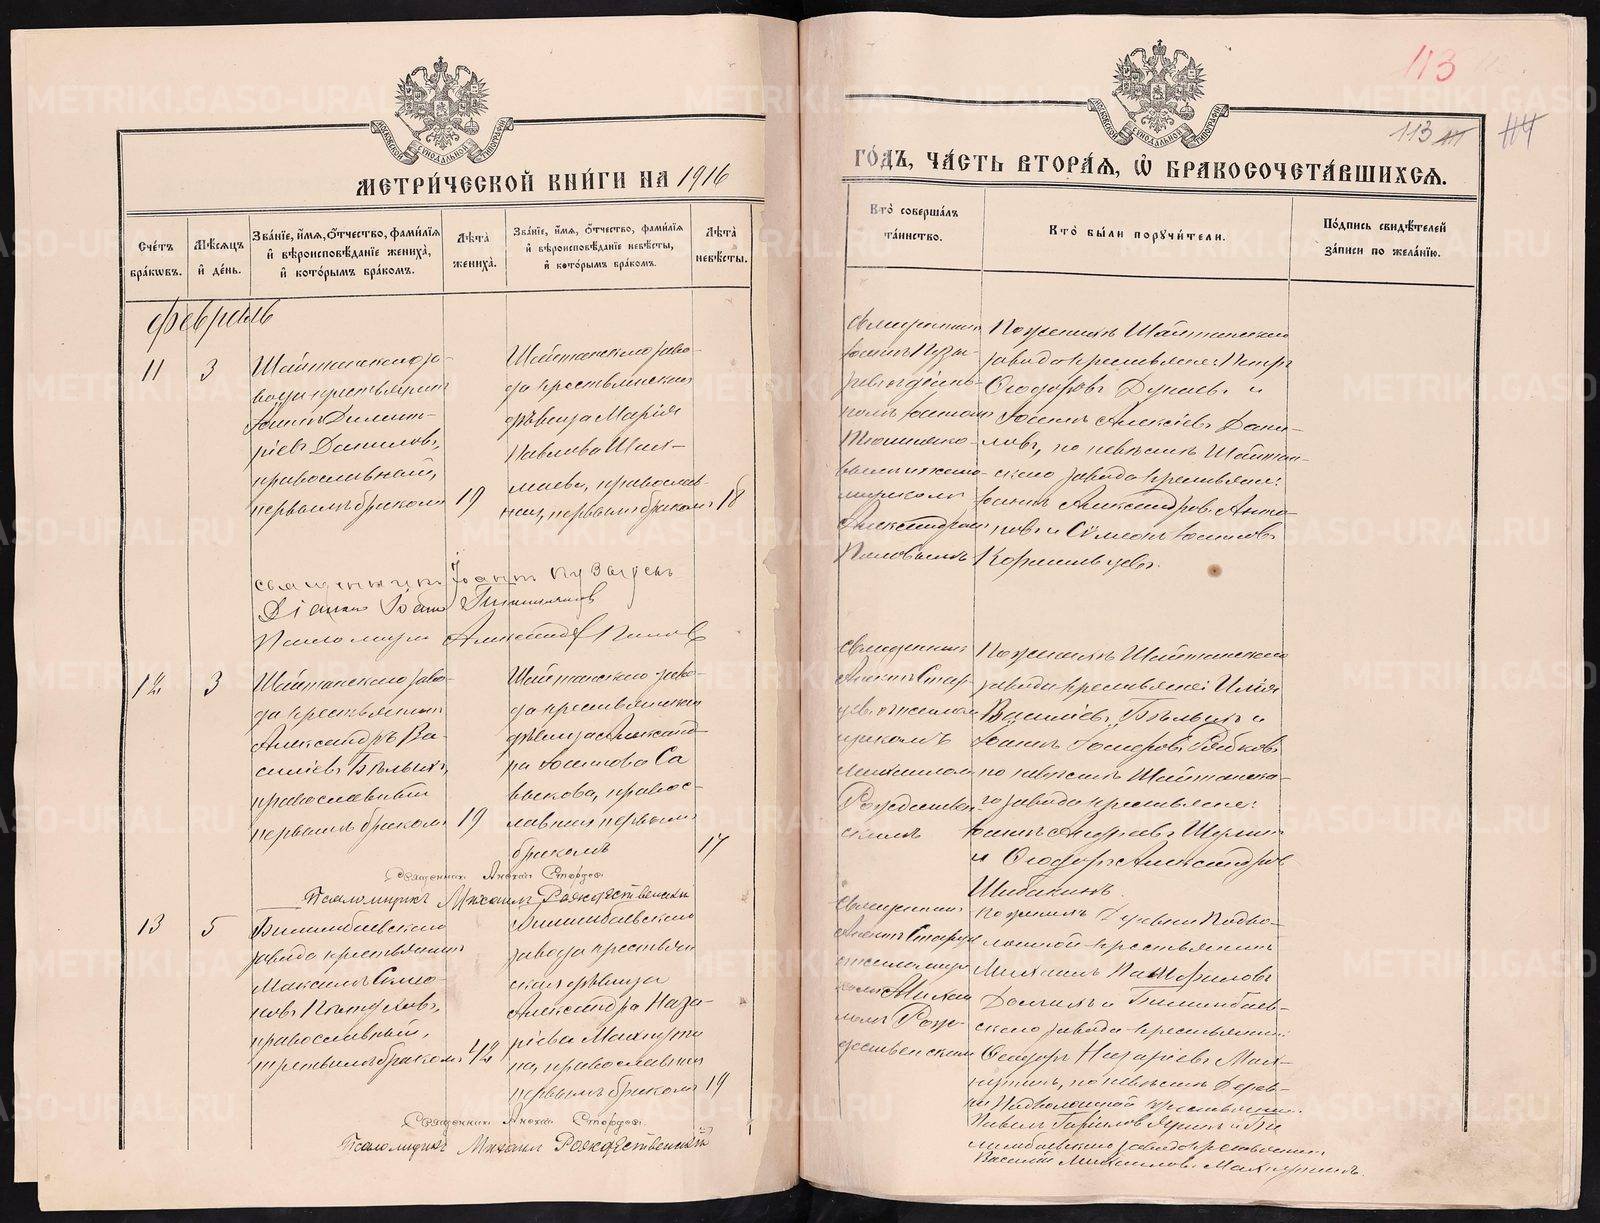 113
113
МЕТРИ́ЧЕСКОЙ КНИ́ГИ НА 1916
ГО́ДЪ, ЧА́СТЬ ВТОРА́Я, Ѡ БРАКОСОЧЕТА́ВШИХСЯ.
Сче́тъ бра́кѡвъ.
Мѣ́сяцъ и де́нь.
Зва́нїе, и́мя, о́тчество, фами́лїя и вѣроисповѣ́данїе жениха́, и кото́рымъ бра́комъ.
Лѣ́та жениха́.
Зва́нїе, и́мя, о́тчество, фами́лїя и вѣроисповѣ́данїе невѣ́сты, и кото́рымъ бра́комъ.
Лѣ́та невѣ́сты.
Кто̀ соверша́лъ та́инство.
Кто̀ бы́ли порꙋчи́тели.
По́дпись свидѣ́телей за́писи по жела́нїю.
Февраль
11
3
Шайтанскаго за-
вода крестьянинъ
Іоаннъ Димит-
ріевъ Даниловъ,
православный,
первымъ бракомъ
19
Шайтанскаго заво-
да крестьянская
дѣвица Марія
Павлова
православ-
ная, первымъ бракомъ
18
Священникъ
Іоаннъ Пузы-
ревъ съ діако-
номъ Іоанномъ
и псало-
мщикомъ
Александромъ
Поповымъ
По женихѣ Шайтанскаго
завода крестьяне: Петръ
Ѳеодоровъ Дунаевъ и
Іоаннъ Алексіевъ Дани-
ловъ, по невѣстѣ Шайтан-
скаго завода крестьяне:
Іоаннъ Александровъ
и Симеонъ Іоанновъ
Кормильцевъ.
Священникъ Іоаннъ Пузыревъ
Діаконъ Іоаннъ
Псаломщикъ Александръ Поповъ
12
3
Шайтанскаго заво-
да крестьянинъ
Александръ Ва-
силіевъ Бѣлыхъ,
православный
первымъ бракомъ
19
Шайтанскаго заво-
да крестьянская
дѣвица Александ-
ра Іоаннова Са
выкова, правос-
лавная первымъ
бракомъ
17
Священникъ
съ псалом-
щикомъ
Михаиломъ
Рождествен-
скимъ
По женихѣ Шайтанскаго
завода крестьяне: Илія
Василіевъ Бѣлыхъ и
Іоаннъ Рябковъ
по невѣстѣ Шайтанска-
го завода крестьяне:
Іоаннъ Андреевъ
и Ѳеодоръ Александровъ
Шибакинъ.
Священникъ
Псаломщикъ Михаилъ Рождественскій
13
5
Билимбаевскаго
завода крестьянинъ
Максимъ Симео-
новъ
православный,
третьимъ бракомъ
42
Билимбаевскаго
завода крестьян
ская дѣвица
Александра Наза-
ріева Махнути
на, православная
первымъ бракомъ
19
Священникъ
съ псаломщи
комъ Михаи
ломъ Рож-
дественскимъ
По женихѣ деревни Подво-
лошной крестьянинъ
Михаилъ Памфиловъ
и Билимбаев-
скаго завода крестьянинъ
Ѳеодоръ Назаріевъ Мах-
нутинъ, по невѣстѣ дерев-
ни Подволошной крестьянинъ
Павелъ Гавриловъ и Би
лимбаевскаго завода крестьянинъ
Василій Михаиловъ Махнутинъ.
Священникъ
Псаломщикъ Михаилъ Рождественскій
METRIKI.GASO-URAL.RU